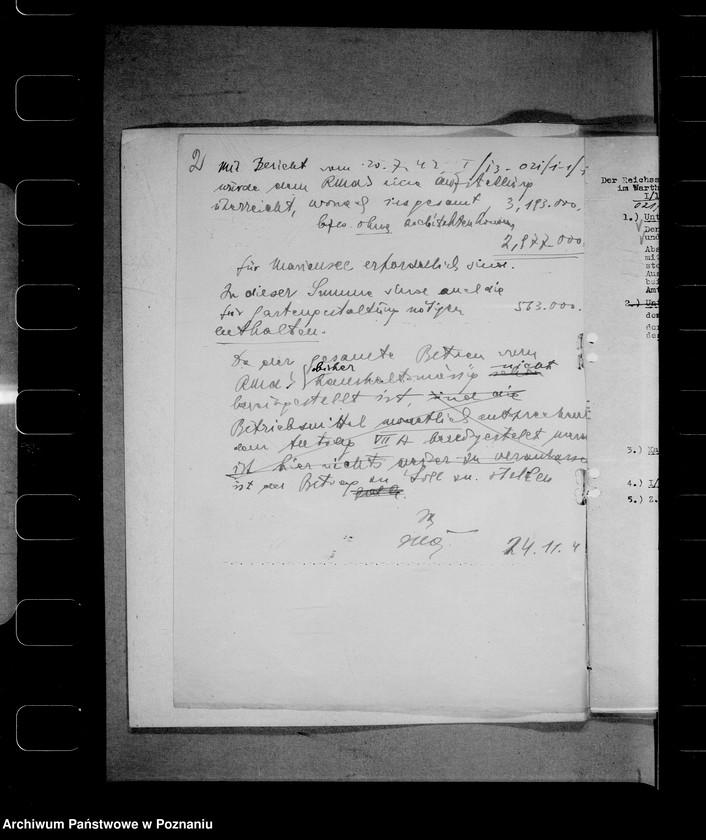 2) Mit Bericht vom 20.7.42 I/13 - 021/1-1/
wurde dem RMdI eine Aufstellung
überreicht, wonach insgesamt 3,193.000,
bzw. ohne Architektenhonorar
2,977.000
für Mariensee erforderlich sind.
In dieser Summe sind auch die
für Gartengestaltung nötigen 563.000.
enthalten.
Da der gesamte Betrag vom
RMdI bisher haushaltsmässig nicht
bereitgestellt ist, sind die
Betriebsmittel monatlich entsprechend
dem Antrag VII A bereitgestellt
ist hier nichts weiter zu veranlassen
ist der Betrag in Soll zu stellen
24.11.4
Der Reichss
im Warth
I/1
021/
1.)
De
und
Abs
mi
sto
Aus
be
Amt
2.)
dem
de
3.)
4.) I/
5.) Z.
Archiwum Państwowe w Poznaniu